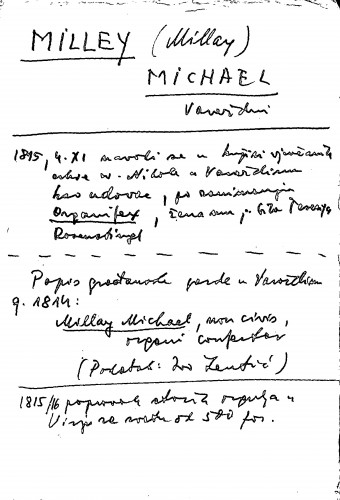 MILLEY (Millay)
MICHAEL
Varaždin
1815, 4. XI navodi se u knjizi vjenčanih
crkve sv. Nikole u Varaždinu
kao udovac, po zanimanju
Organifex, žena mu je bila Terezija
Popis građanske garde u Varaždinu
g. 1814:
Millay Michael, non civis,
organi confector
(Podatak: Ivo Lentić)
1815/16 popravak starih orgulja u
Virje za svotu od 500 for.